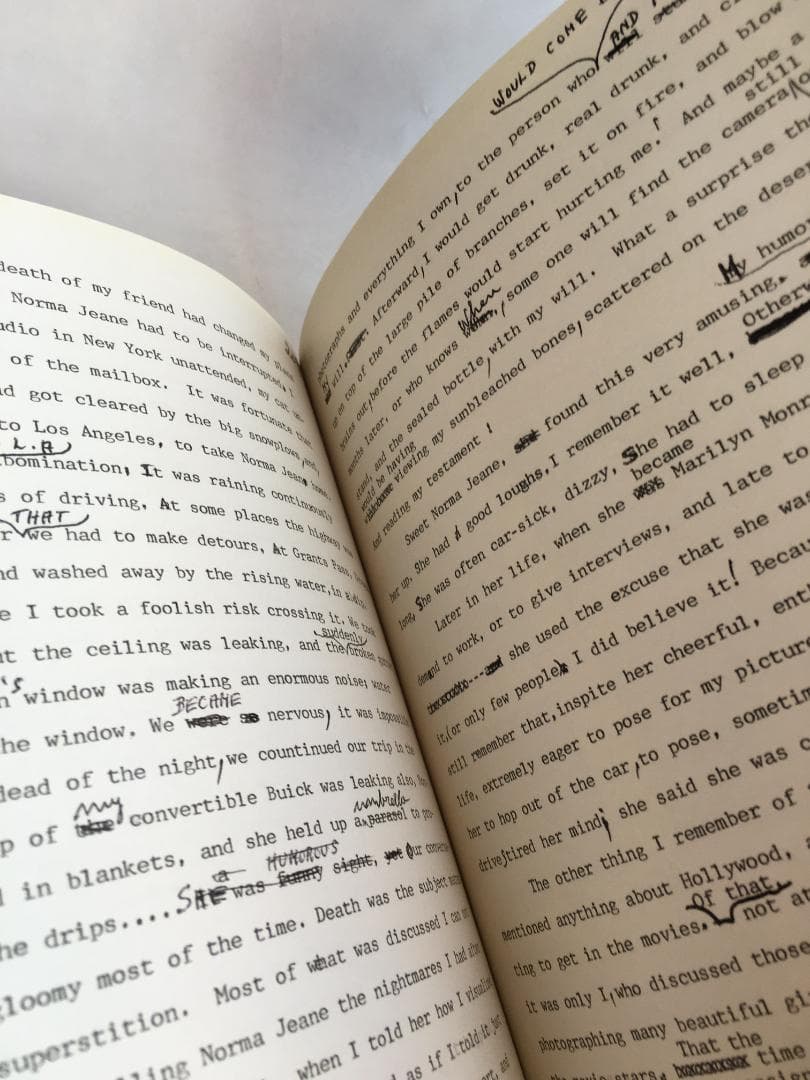 death of my friend had changed my plans
Norma Jeane had to be interrupted,
udio in New York unattended, my cat
of the mailbox. It was fortunate that
d got cleared by the big snowplows, and,
to Los Angeles, to take Norma Jeane home.
L.A
bomination, It was raining continuously
s of driving. At some places the highway
THAT
r we had to make detours. At Grants Pass,
nd washed away by the rising water, in
e I took a foolish risk crossing it. We
suddenly
t the ceiling was leaking, and the broken
n's window was making an enormous noise; water
BECAME
he window. We were so nervous, it was
dead of the night, we countinued our trip in the
my
p of the convertible Buick was leaking also,
umbrella
in blankets, and she held up a parasol to
a HUMOROUS
he drips.... SHE was funny sight, yet Our
gloomy most of the time. Death was the subject
superstition. Most of what was discussed I can
lling Norma Jeane the nightmares I had after
when I told her how I
as if I told it just
WOULD COME
AND
photographs and everything I own, to the person who
will, Afterward, I would get drunk, real drunk, and
up on top of the large pile of branches, set it on fire, and blow
brains out, before the flames would start hurting me! And maybe a
still
When
months later, or who knows, some one will find the camera
stand, and the sealed bottle, with my will. What a surprise
would be having
viewing my sunbleached bones, scattered on the
And reading my testament!
My humo
Sweet Norma Jeane, found this very amusing,
her up. She had good loughs, I remember it well, Otherw
long, She was often car-sick, dizzy, She had to sleep
became
Later in her life, when she Marilyn Monr
and to work, or to give interviews, and late to
she used the excuse that she was
it, (or only few people) I did believe it! Becau
still remember that, inspite her cheerful,
life, extremely eager to pose for my picture
her to hop out of the car, to pose, sometim
drive tired her mind; she said she was
The other thing I remember of
mentioned anything about Hollywood,
of that,
ting to get in the movies. not at
it was only I, who discussed those
photographing many beautiful
That the
stars, time